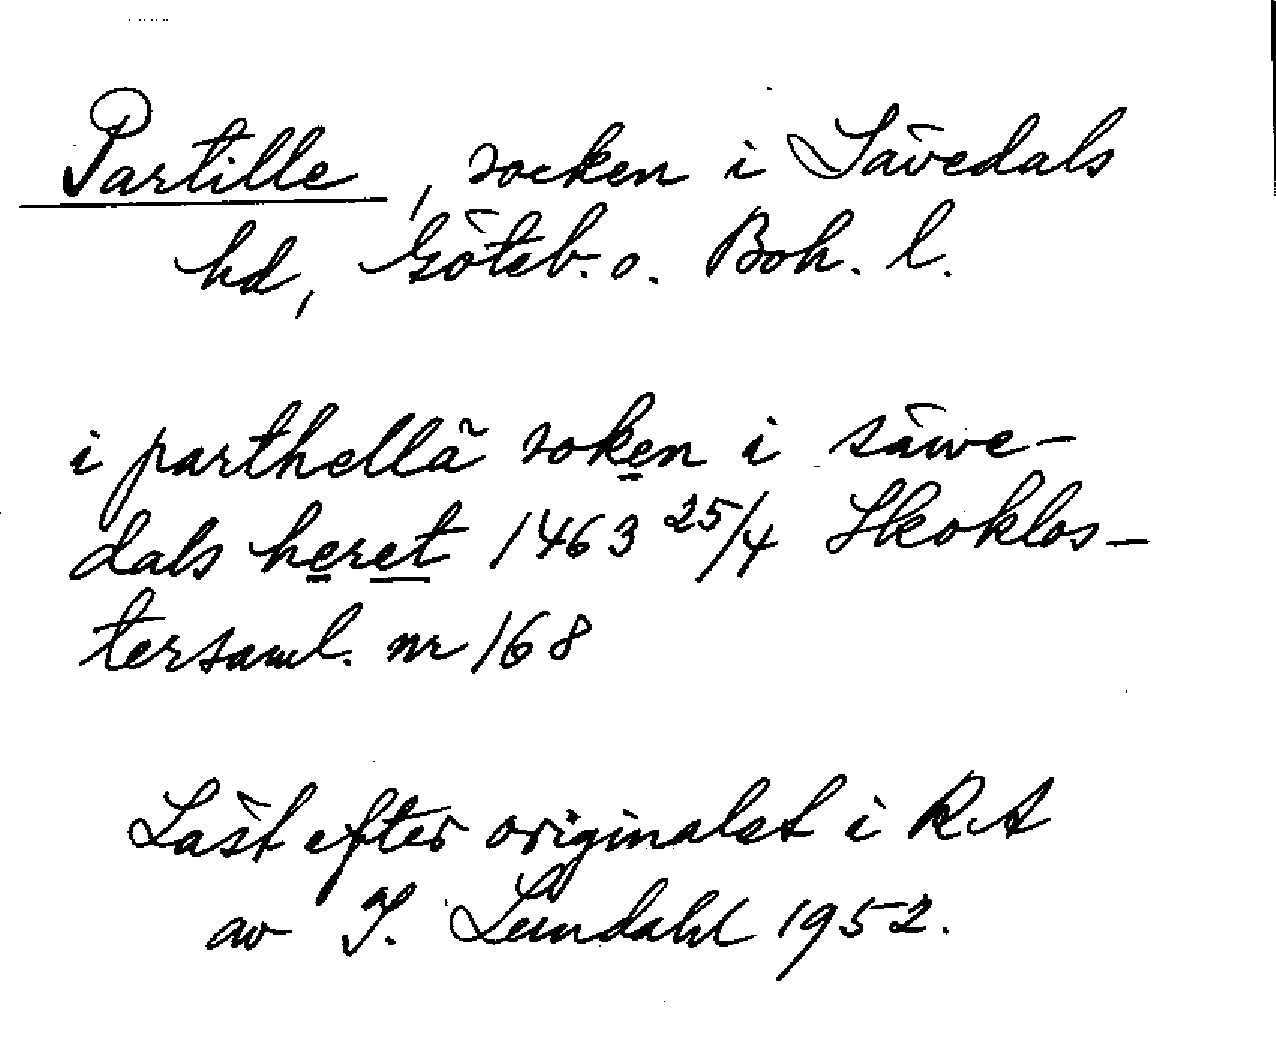 Partille, socken i Sävedals
hd, Göteb. o. Boh. l.
i parthellä soken i säwe-
dals heret 1463 25/4 Skoklos-
tersaml. nr 168
Läst efter originalet i RA
av I. Lundahl 1952.